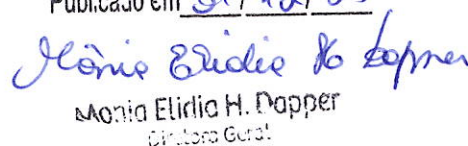 Publicado em 31/12/
Mônia Elidia H. Dapper
Monia Elidia H. Dapper
Diretora Geral